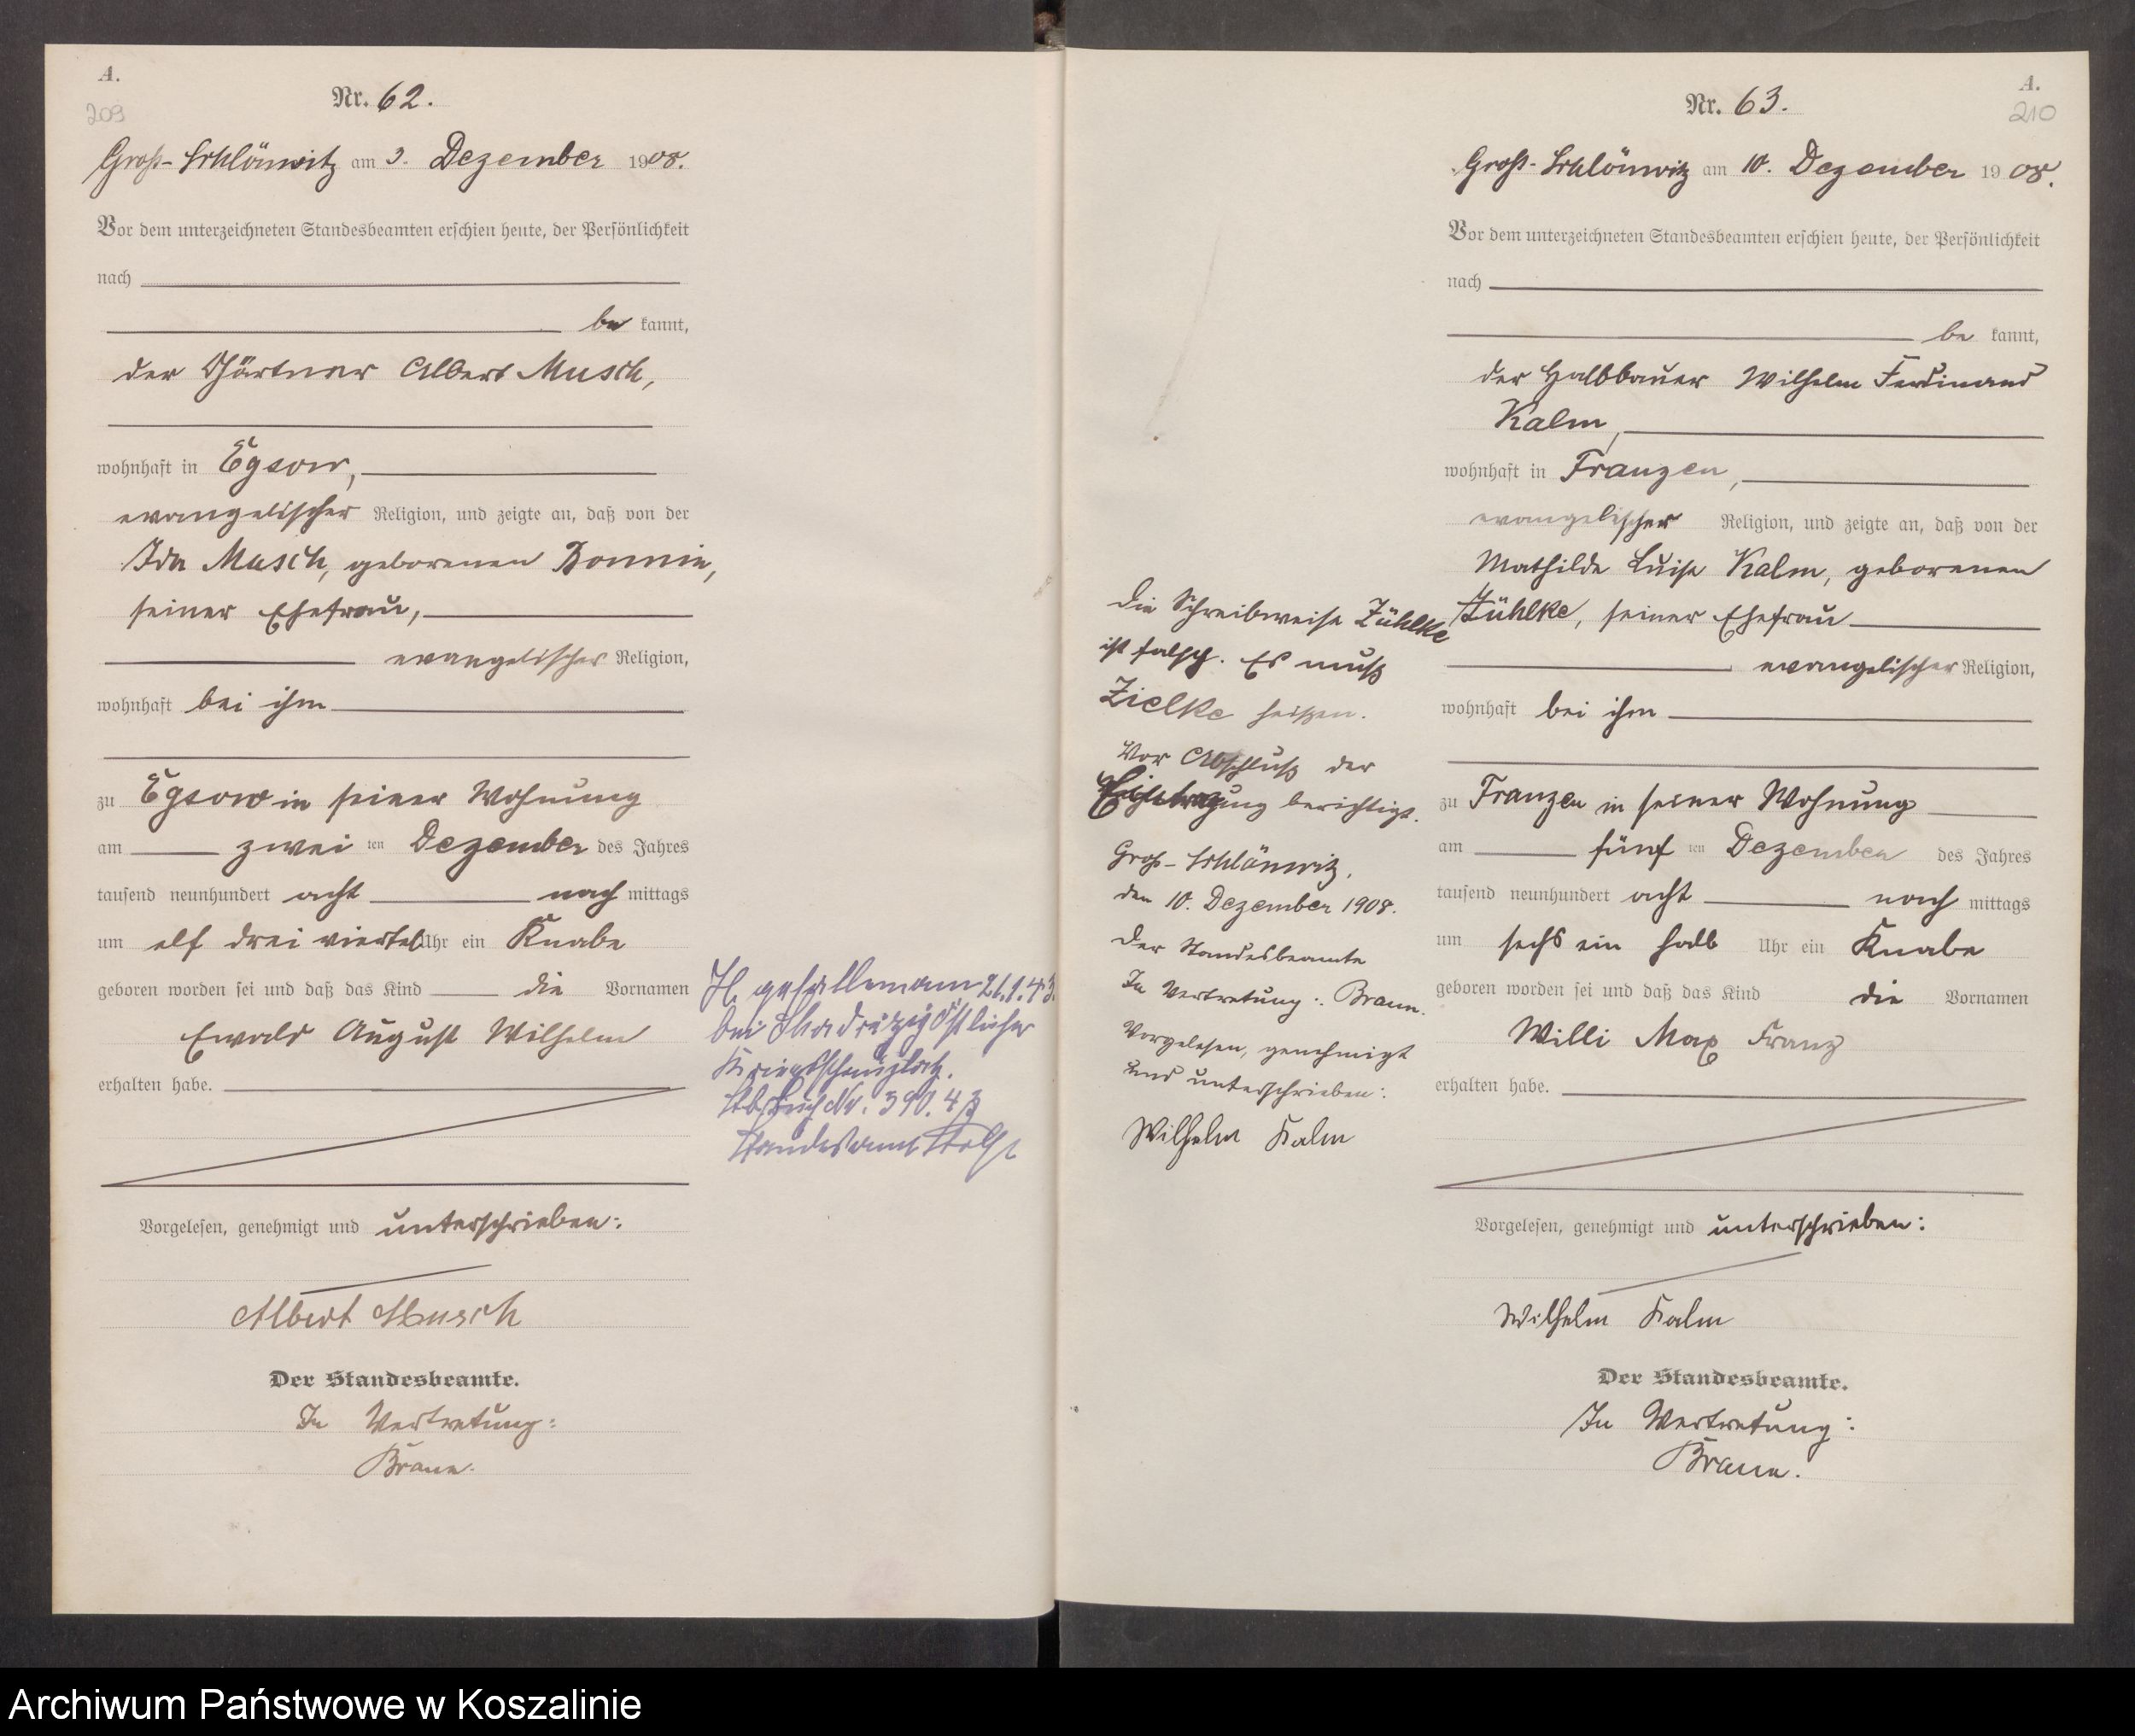 A.
209
Nr. 62.
Groß-Schlönwitz am 3. Dezember 1908.
Vor dem unterzeichneten Standesbeamten erschien heute, der Persönlichkeit
nach
be kannt,
der Gärtner Albert Musch,
wohnhaft in Egsow,
evangelischer Religion, und zeigte an, daß von der
Ida Musch, geborenen Bonnin,
seiner Ehefrau,
evangelischer Religion,
wohnhaft bei ihm
zu Egsow in seiner Wohnung
am zwei ten Dezember des Jahres
tausend neunhundert acht nach mittags
um elf drei viertel Uhr ein Knabe
geboren worden sei und daß das Kind die Vornamen
Ewald August Wilhelm
erhalten habe.
Vorgelesen, genehmigt und unterschrieben:
Albert Musch
Der Standesbeamte.
In Vertretung:
Braun.
H. gefallen am 21.1.43
bei östlicher
Kriegsschauplatz.
Stb. Buch Nr. 390.43
Standesamt Stolp
A.
210
Nr. 63.
Groß-Schlönwitz am 10. Dezember 1908.
Vor dem unterzeichneten Standesbeamten erschien heute, der Persönlichkeit
nach
be kannt,
der Halbbauer Wilhelm Ferdinand
Kalm,
wohnhaft in Franzen,
evangelischer Religion, und zeigte an, daß von der
Mathilde Luise Kalm, geborenen
Zühlke, seiner Ehefrau
evangelischer Religion,
wohnhaft bei ihm
zu Franzen in seiner Wohnung
am fünf ten Dezember des Jahres
tausend neunhundert acht nach mittags
um sechs ein halb Uhr ein Knabe
geboren worden sei und daß das Kind die Vornamen
Willi Max Franz
erhalten habe.
Vorgelesen, genehmigt und unterschrieben:
Wilhelm Kalm
Der Standesbeamte.
In Vertretung:
Braun.
Die Schreibweise Zühlke
ist falsch. Es muß
Zielke heißen.
Vor Abschluß der
Eintragung berichtigt.
Groß-Schlönwitz,
den 10. Dezember 1908.
Der Standesbeamte
In Vertretung: Braun.
Vorgelesen, genehmigt
und unterschrieben:
Wilhelm Kalm
Archiwum Państwowe w Koszalinie